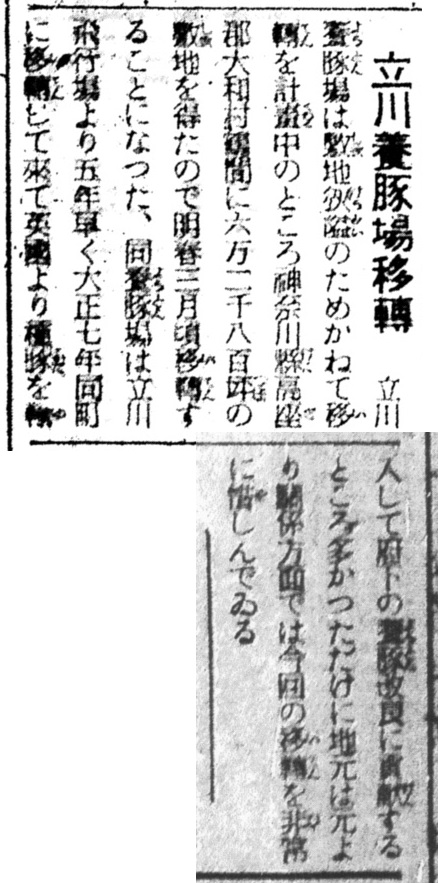 立川養豚場移轉
立川
養豚場は敷地狹隘のためかねて移
轉を計畫中のところ神奈川縣高座
郡大和村鶴間に六万二千八百坪の
敷地を得たので明春三月頃移轉す
ることになつた、同養豚場は立川
飛行場より五年早く大正七年同町
に移轉して來て英國より種豚を輸
入して府下の養豚改良に貢献する
ところ多かつただけに地元は元よ
り關係方面では今回の移轉を非常
に惜しんでゐる